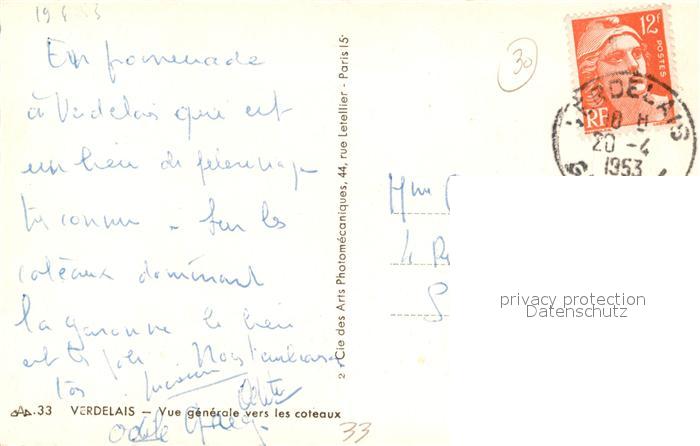 En promenade
à Verdelais qui est
un lieu de pèlerinage
très connu - sur les
coteaux dominant
la garonne le lieu
est très joli
Odile
2 - Cie des Arts Photomécaniques, 44, rue Letellier - Paris 15e
33 VERDELAIS — Vue générale vers les coteaux
30
12f
POSTES
RF
VERDELAIS
18 H
20 -4
1953
Mme
privacy protection
Datenschutz
33